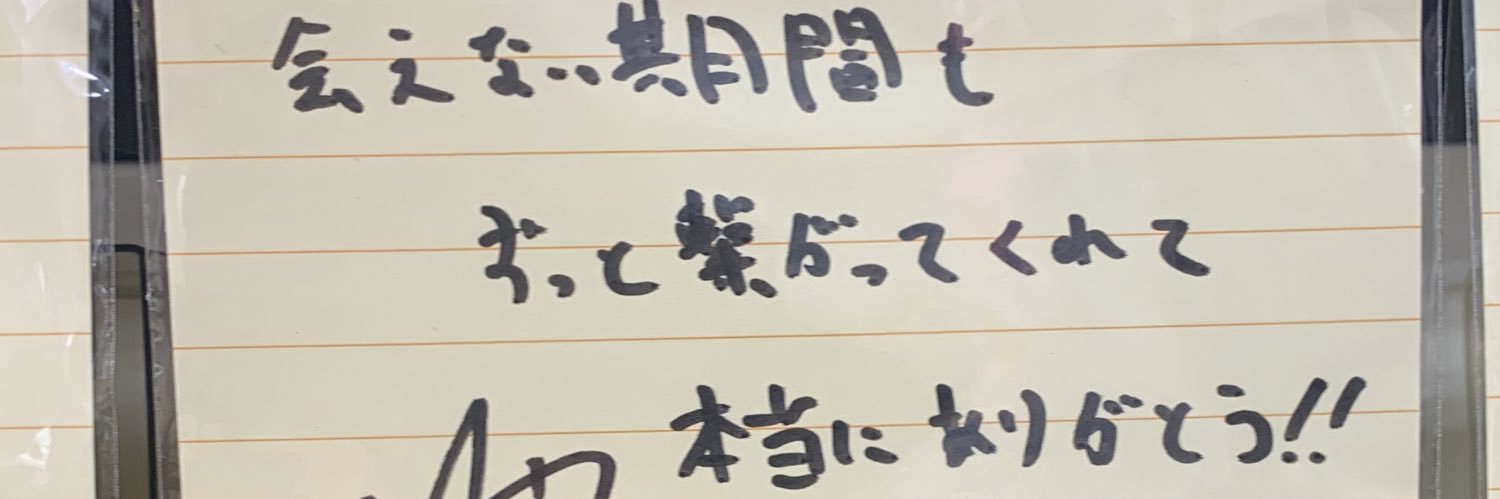 会えない期間も
ずっと繋がってくれて
本当にありがとう!!